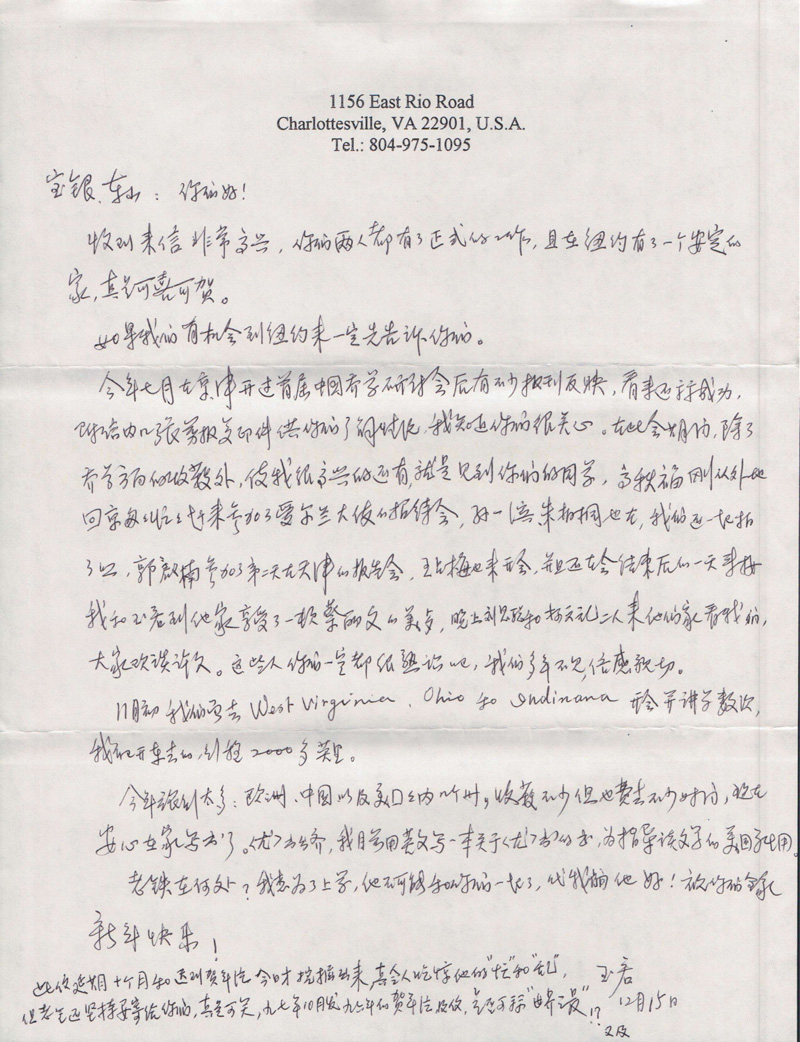 1156 East Rio Road
Charlottesville, VA 22901, U.S.A.
Tel.: 804-975-1095
宝银、东山：你们好！
收到来信非常高兴，你们两人都有了正式的工作，且在纽约有了一个安定的
家，真是可喜可贺。
如果我们有机会到纽约来一定先告诉你们。
今年七月在京津开过首届中国乔学研讨会后有不少报刊反映，看来还算成功，
附信内几张剪报复印件供你们了解情况，我知道你们很关心。在此会期间，除了
乔学方面的收获外，使我很高兴的还有就是见到你们的同学，高秋福刚从外地
回京每次赶来参加了爱尔兰大使的招待会，孙一涛朱柏桐也在，我们还一起拍
了照，郭啟楠参加了第二天在天津的报告会，王占梅也来开会，并且还在会结束后的一天来接
我和玉若到他家享受了一顿蔡丽文的美步，晚上刘思聪和杨天礼二人来他们家看我们，
大家欢谈许久。这些人你们一定都很熟识吧，我们多年不见，倍感亲切。
11月初我们要去 West Virginia、Ohio 和 Indinana 开会并讲学数次，
我们开车去的，到程2000多英里。
今年跑到太多：欧洲、中国以及美国之内几个州，收获不少但也费去不少时间，现在
安心在家写书了。《尤》书出齐，我目前用英文写一本关于《尤》书的书，为指导读文学的美国学生用。
老铁在何处？我想为了上学，他不可能和你们一起了，代我们问他好！祝你们全家
新年快乐！
此信延期十个月和迟到贺年片今日才挖掘出来，真令人吃惊他的"忙"和"乱"，
但老先还坚持要寄给你们，真是可笑，九七年10月发九六年的贺年片及信，是否可称"世界之最"！？
玉若
12月15日
又及